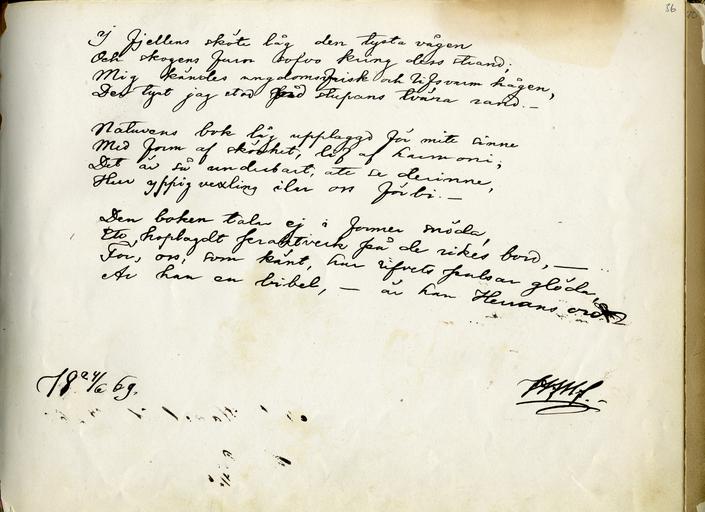 56
I fjellens sköte låg den tysta vågen
Och skogens furor sofvo kring dess strand;
Mig kändes ungdomsfrisk och lifsvarm hågen,
Der tyst jag stod på stupans tvära rand. —
Naturens bok låg upplagd för mitt sinne
Med form af skönhet, lif af harmoni;
Det är så underbart, att se derinne,
Hur yppig vexling ilar oss förbi. —
Den boken talar ej i former snöda,
Ett hoplagdt praktverk på de rikes bord, —
För oss, som känt, hur lifvets pulsar glöda,
Är han en bibel, — är han Herrans ord
18 24/6 69.